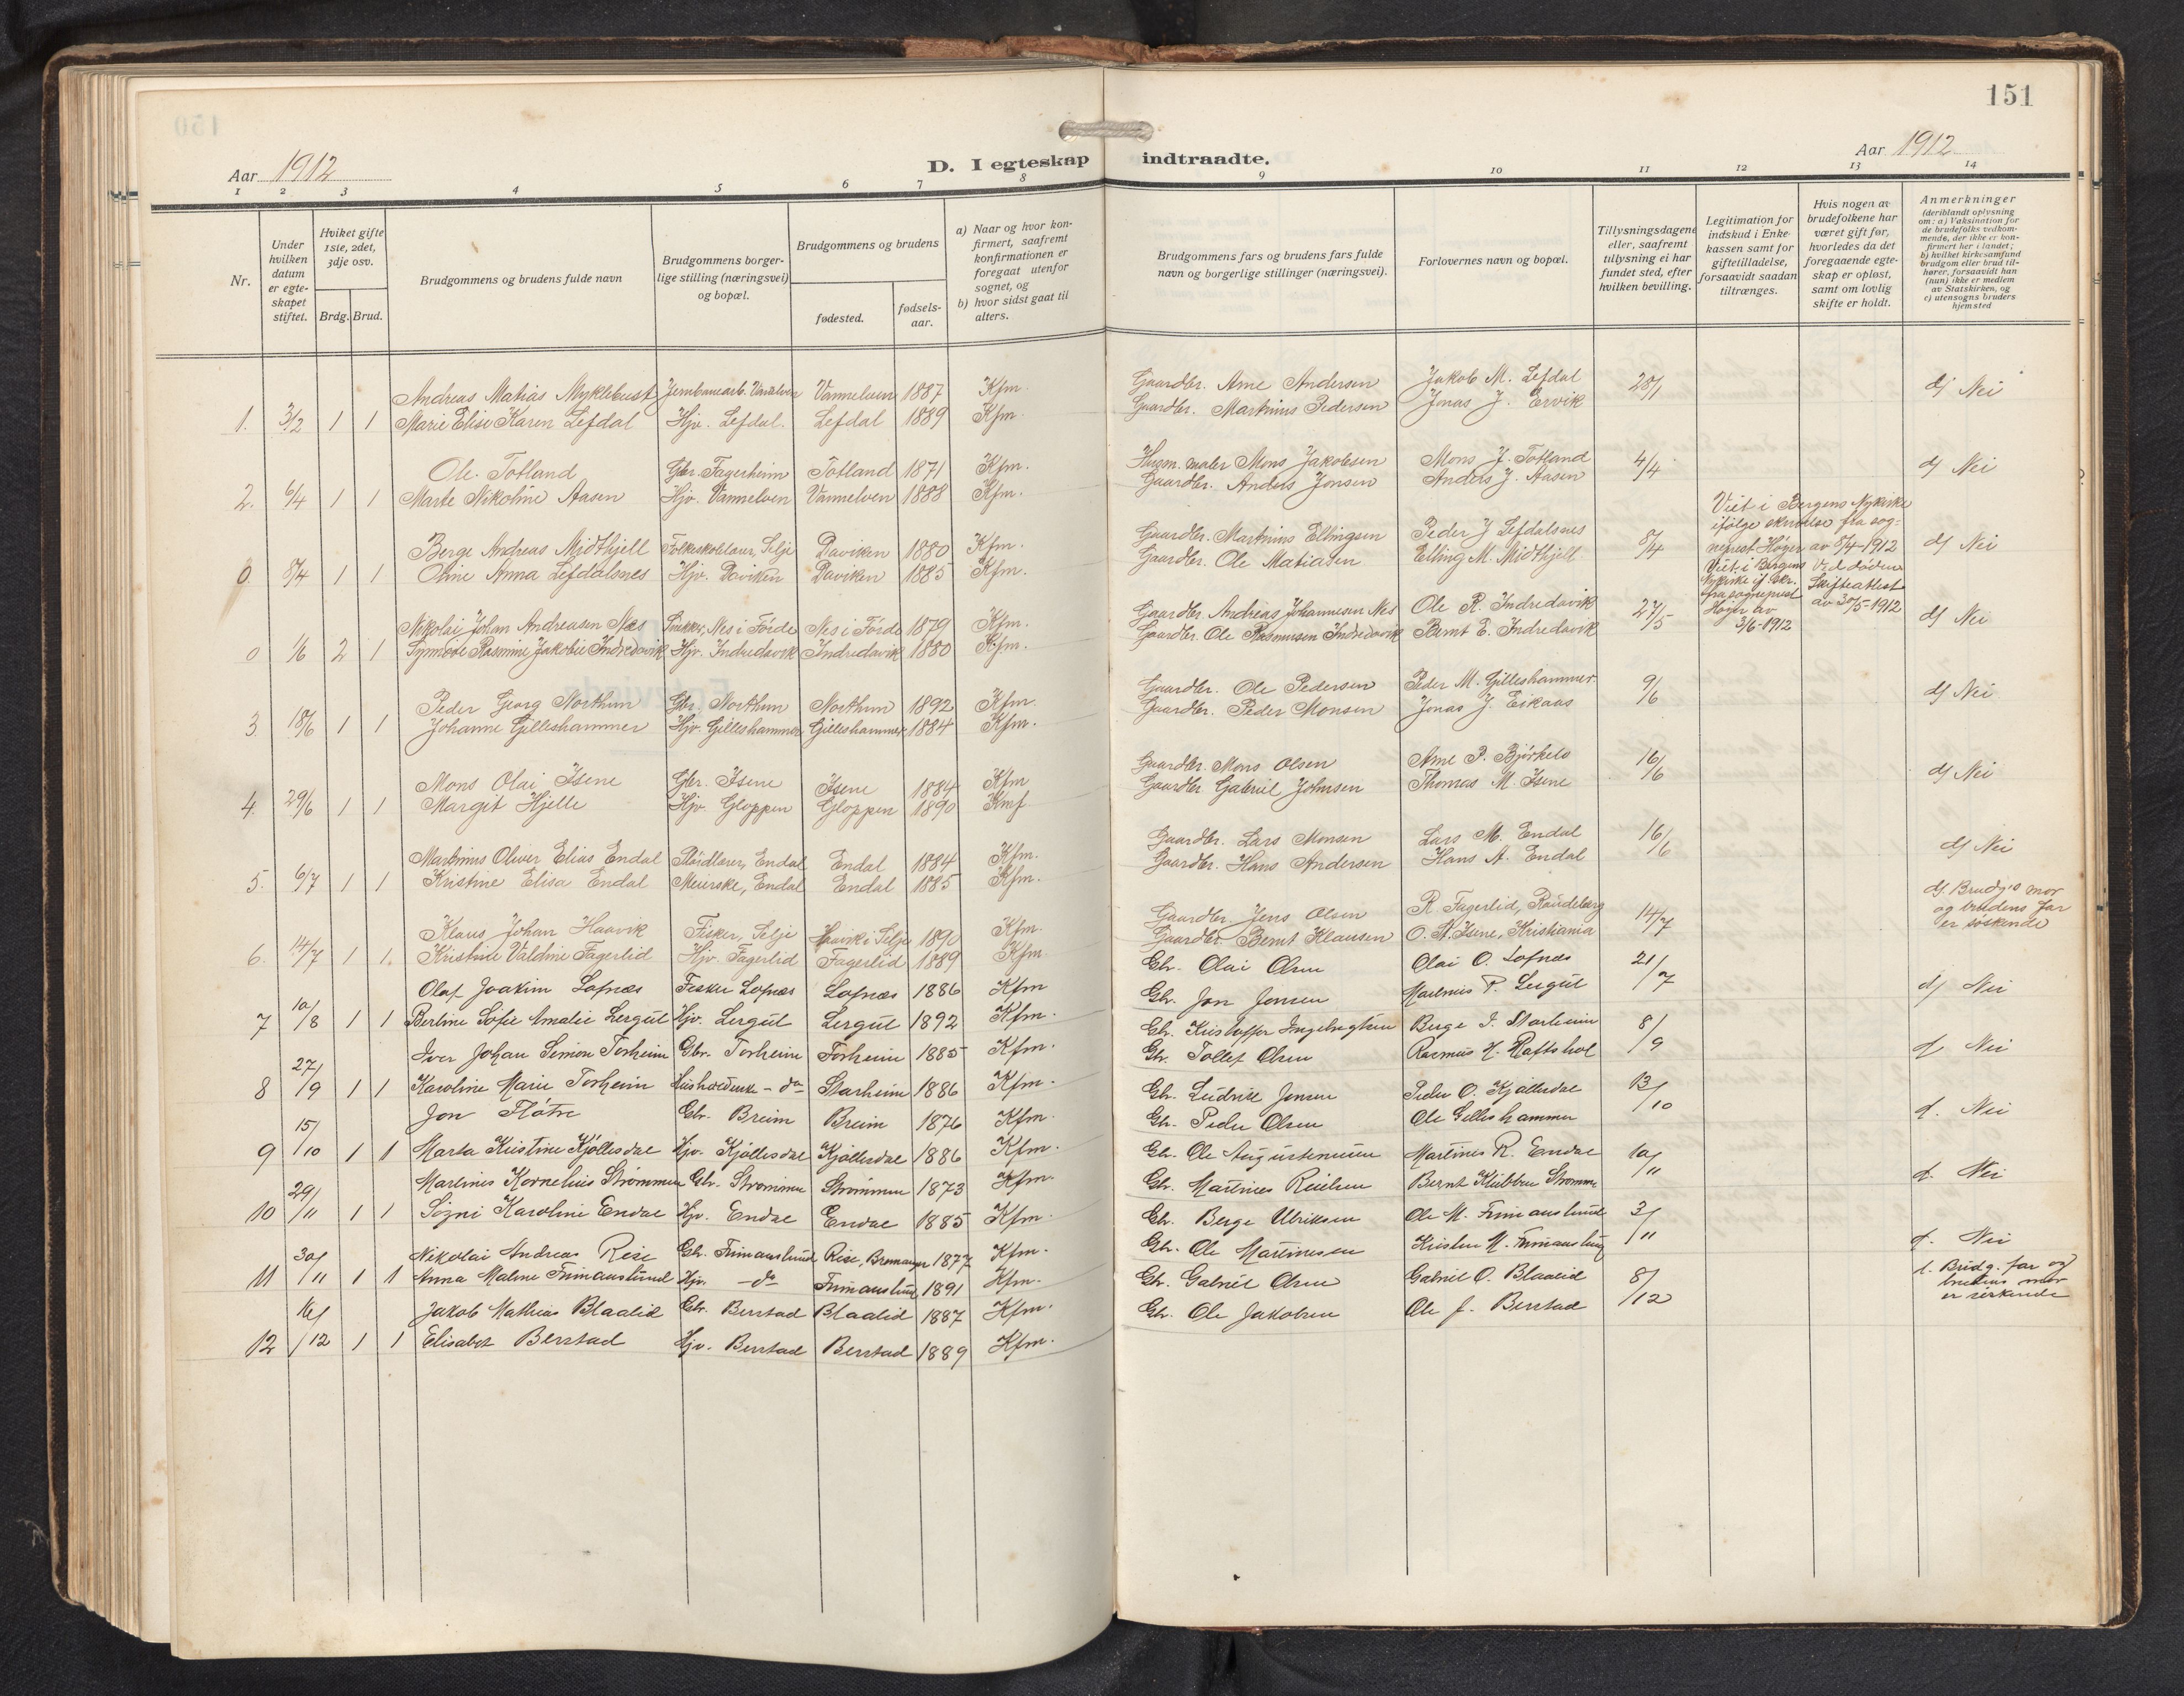 151
Aar 1912
D. I egteskap indtraadte.
Aar 1912
1 2 3 4 5 6 7 8 9 10 11 12 13 14
Nr.
Under hvilken datum er egteskapet stiftet.
Hviket gifte 1ste, 2det, 3dje osv.
Brdg. Brud.
Brudgommens og brudens fulde navn
Brudgommens borgerlige stilling (næringsvei) og bopæl.
Brudgommens og brudens
fødested.
fødselsaar.
a) Naar og hvor konfirmert, saafremt konfirmationen er foregaat utenfor sognet, og
b) hvor sidst gaat til alters.
Brudgommens fars og brudens fars fulde navn og borgerlige stillinger (næringsvei).
Forlovernes navn og bopæl.
Tillysningsdagene eller, saafremt tillysning ei har fundet sted, efter hvilken bevilling.
Legitimation for indskud i Enkekassen samt for giftetilladelse, forsaavidt saadan tiltrænges.
Hvis nogen av brudefolkene har været gift før, hvorledes da det foregaaende egteskap er opløst, samt om lovlig skifte er holdt.
Anmerkninger
(deriblandt oplysning om: a) Vaksination for de brudefolks vedkommende, der ikke er konfirmert her i landet; b) hvilket kirkesamfund brudgom eller brud tilhører, forsaavidt han (hun) ikke er medlem av Statskirken, og c) utensogns bruders hjemsted
Andreas Matias Myklebust Jernbanearb. Vannelven Vannelven 1887 Kfm. Gaardbr. Arne Andersen Jakob M. Lefdal 28/1 d) Nei
1. 3/2 1 1 Marie Elise Karen Lefdal Hjv. Lefdal. Lefdal 1889 Kfm. Gaardbr. Markinus Pedersen Jonas J. Ervik
Ole Totland Gbr. Fagerheim Totland 1871 Kfm. Husm. maler Mons Jakobsen Mons J. Totland 4/4 d) Nei
2. 6/4 1 1 Marte Nikoline Aasen Hjv. Vannelven Vannelven 1888 Kfm. Gaardbr. Anders Jonsen Anders J. Aasen
Berge Andreas Midthjell Folkeskolelærer, Selje Daviken 1880 Kfm. Gaardbr. Martinus Ellingsen Peder J Lefdalsnes 8/4 Viet i Bergens Nykirke ifølge skrivelse fra sogneprest Høyer av 8/4-1912 d) Nei
0. 8/4 1 1 Oline Anna Lefdalsnes Hjv. Daviken Daviken 1885 Kfm. Gaardbr. Ole Matiasen Elling M. Midthjell
Nikolai Johan Andreasen Nes Snekker, Nes i Førde Nes i Førde 1879 Kfm. Gaardbr. Andreas Johannesen Nes Ole R. Indredavik 27/5 Viet i Bergens Nykirke if. skr. fra sogneprest Høyer av 3/6-1912 Ved døden Skifteattest av 30/5-1912 d) Nei
0 1/6 2 1 Synnøve Rasmine Jakobie Indredavik Hjv. Indredavik Indredavik 1880 Kfm. Gaardbr. Ole Rasmusen Indredavik Bernt E. Indredavik
Peder Georg Northun Gbr. Northun Northun 1892 Kfm. Gaardbr. Ole Pedersen Peder M. Gilleshammer 9/6 d) Nei
3. 18/6 1 1 Johanne Gilleshammer Hjv. Gilleshammer Gilleshammer 1884 Kfm. Gaardbr. Peder Monsen Jonas J. Eikaas
Mons Olai Isene Gbr. Isene Isene 1884 Kfm Gaardbr. Mons Olsen Arne P. Bjørkelo 16/6 d) Nei
4. 29/6 1 1 Margit Hjelle Hjv. Gloppen Gloppen 1890 Kmf Gaardbr. Gabriel Johnsen Thomas M. Isene
Markinus Oliver Elias Endal Endal Endal 1884 Kfm. Gaardbr. Lars Monsen Lars M. Endal 16/6 d) Nei
5. 6/7 1 1 Kristine Elisa Endal Meierske, Endal Endal 1885 Kfm. Gaardbr. Hans Andersen Hans A. Endal
Klaus Johan Haavik Fisker, Selje Haavik i Selje 1890 Kfm. Gaardbr. Jens Olsen R. Fagerlid, Raudeberg 14/7 d). Brudg's mor og brudens far er søskende
6. 14/7 1 1. Kristine Valdine Fagerlid Hjv. Fagerlid Fagerlid 1889 Kfm. Gaardbr. Bernt Klausen O. A. Isene, Kristiania
Olaf Joakim Lofnæs Fisker Lofnæs Lofnæs 1886 Kfm Gbr. Olai Olsen Olai O. Lofnæs 21/7 d) Nei
7 10/8 1 1 Berline Sofie Amalie Lergul Hjv. Lergul Lergul 1892 Kfm. Gbr. Jon Jonsen Martinus P. Lergul
Iver Johan Simon Torheim Gbr. Torheim Torheim 1885 Kfm. Gbr. Kristoffer Ingebrigtsen Berge I. Starheim 8/9 d. Nei
8 27/9 1 1 Karoline Marie Torheim - do Starheim 1886 Kfm. Gbr. Tollef Olsen Rasmus H. Haftshol
Jon Fløtre Gbr. Breim Breim 1876 Kfm. Gbr. Ludvik Jonsen Peder O. Kjøllesdal 13/10 d. Nei
9 15/10 1 1 Marta Kristine Kjøllesdal Hjv. Kjøllesdal Kjøllesdal 1886 Kfm. Gbr. Peder Olsen Ole Gilleshammer
Martinus Kornelius Strømmen Gbr. Strømmen Strømmen 1873 Kfm. Gbr. Ole Augustinusen Martinus R. Endal 10/11 d. Nei
10 29/11 1 1 Signi Karoline Endal Hjv. Endal Endal 1885 Kfm. Gbr. Martinus Bernt Strømme
Nikolai Andreas Rise Gbr. Frimanslund Rise, Bremanger 1877 Kfm. Gbr. Berge Ulriksen Ole M. Frimanslund 3/11 d. Nei
11 30/11 1 1 Anna Malene Frimanslund Hjv. - do Frimanslund 1891 Kfm. Gbr. Ole Martinusen Kristen M. Frimanslund
Jakob Mathias Blaalid Gbr. Berstad Blaalid 1887 Kfm. Gbr. Gabriel Olsen Gabriel O. Blaalid 8/12 d. Brudg. far og brudens mor er søskende
12 16/12 1 1 Elisabet Berstad Hjv. Berstad Berstad 1889 Kfm. Gbr. Ole Jakobsen Ole J. Berstad